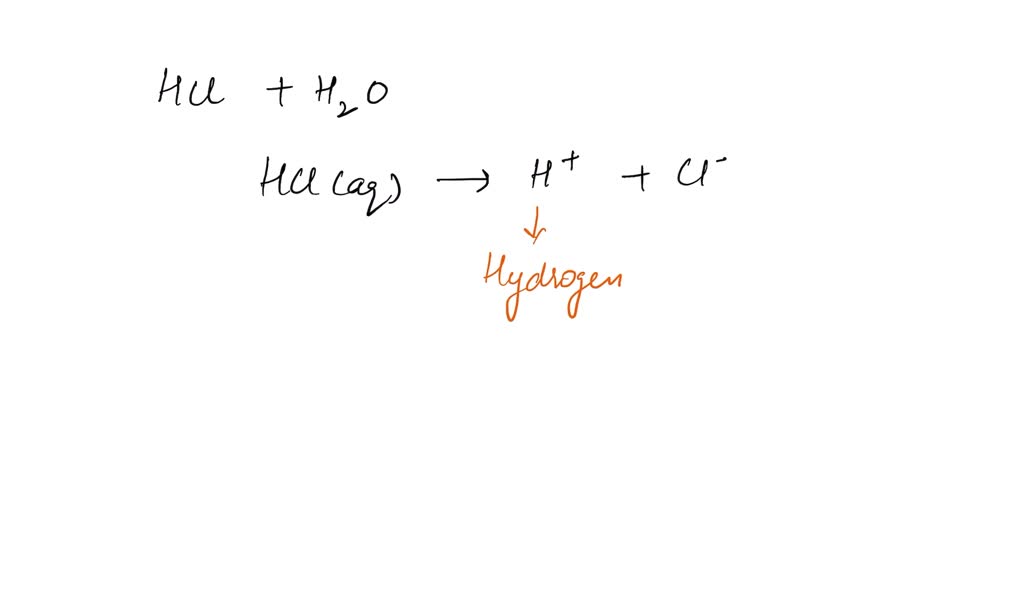 HCl + H₂O
HCl (aq) → H⁺ + Cl⁻
↓
Hydrogen